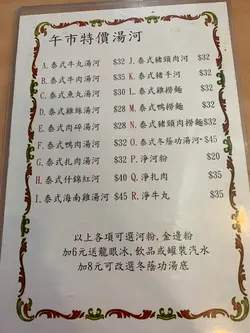 午市特價湯河
A.泰式牛丸湯河 $32
B.泰式牛肉湯河 $35
C.泰式魚丸湯河 $30
D.泰式雞絲湯河 $28
E.泰式肉碎湯河 $28
F.泰式鴨肉湯河 $32
G.泰式扎肉湯河 $31
H.泰式什錦紅河 $40
I.泰式海南雞湯河 $45
J.泰式豬頸肉河 $32
K.泰式豬手河 $32
L.泰式雞撈麵 $32
M.泰式鴨撈麵 $32
N.泰式豬頸肉撈麵 $32
O.泰式冬蔭功湯河 $45
P.淨河粉 $20
Q.淨扎肉 $35
R.淨牛丸 $35
以上各項可選河粉,金邊粉
加6元送龍眼冰,飲品或罐裝汽水
加8元可改選冬蔭功湯底